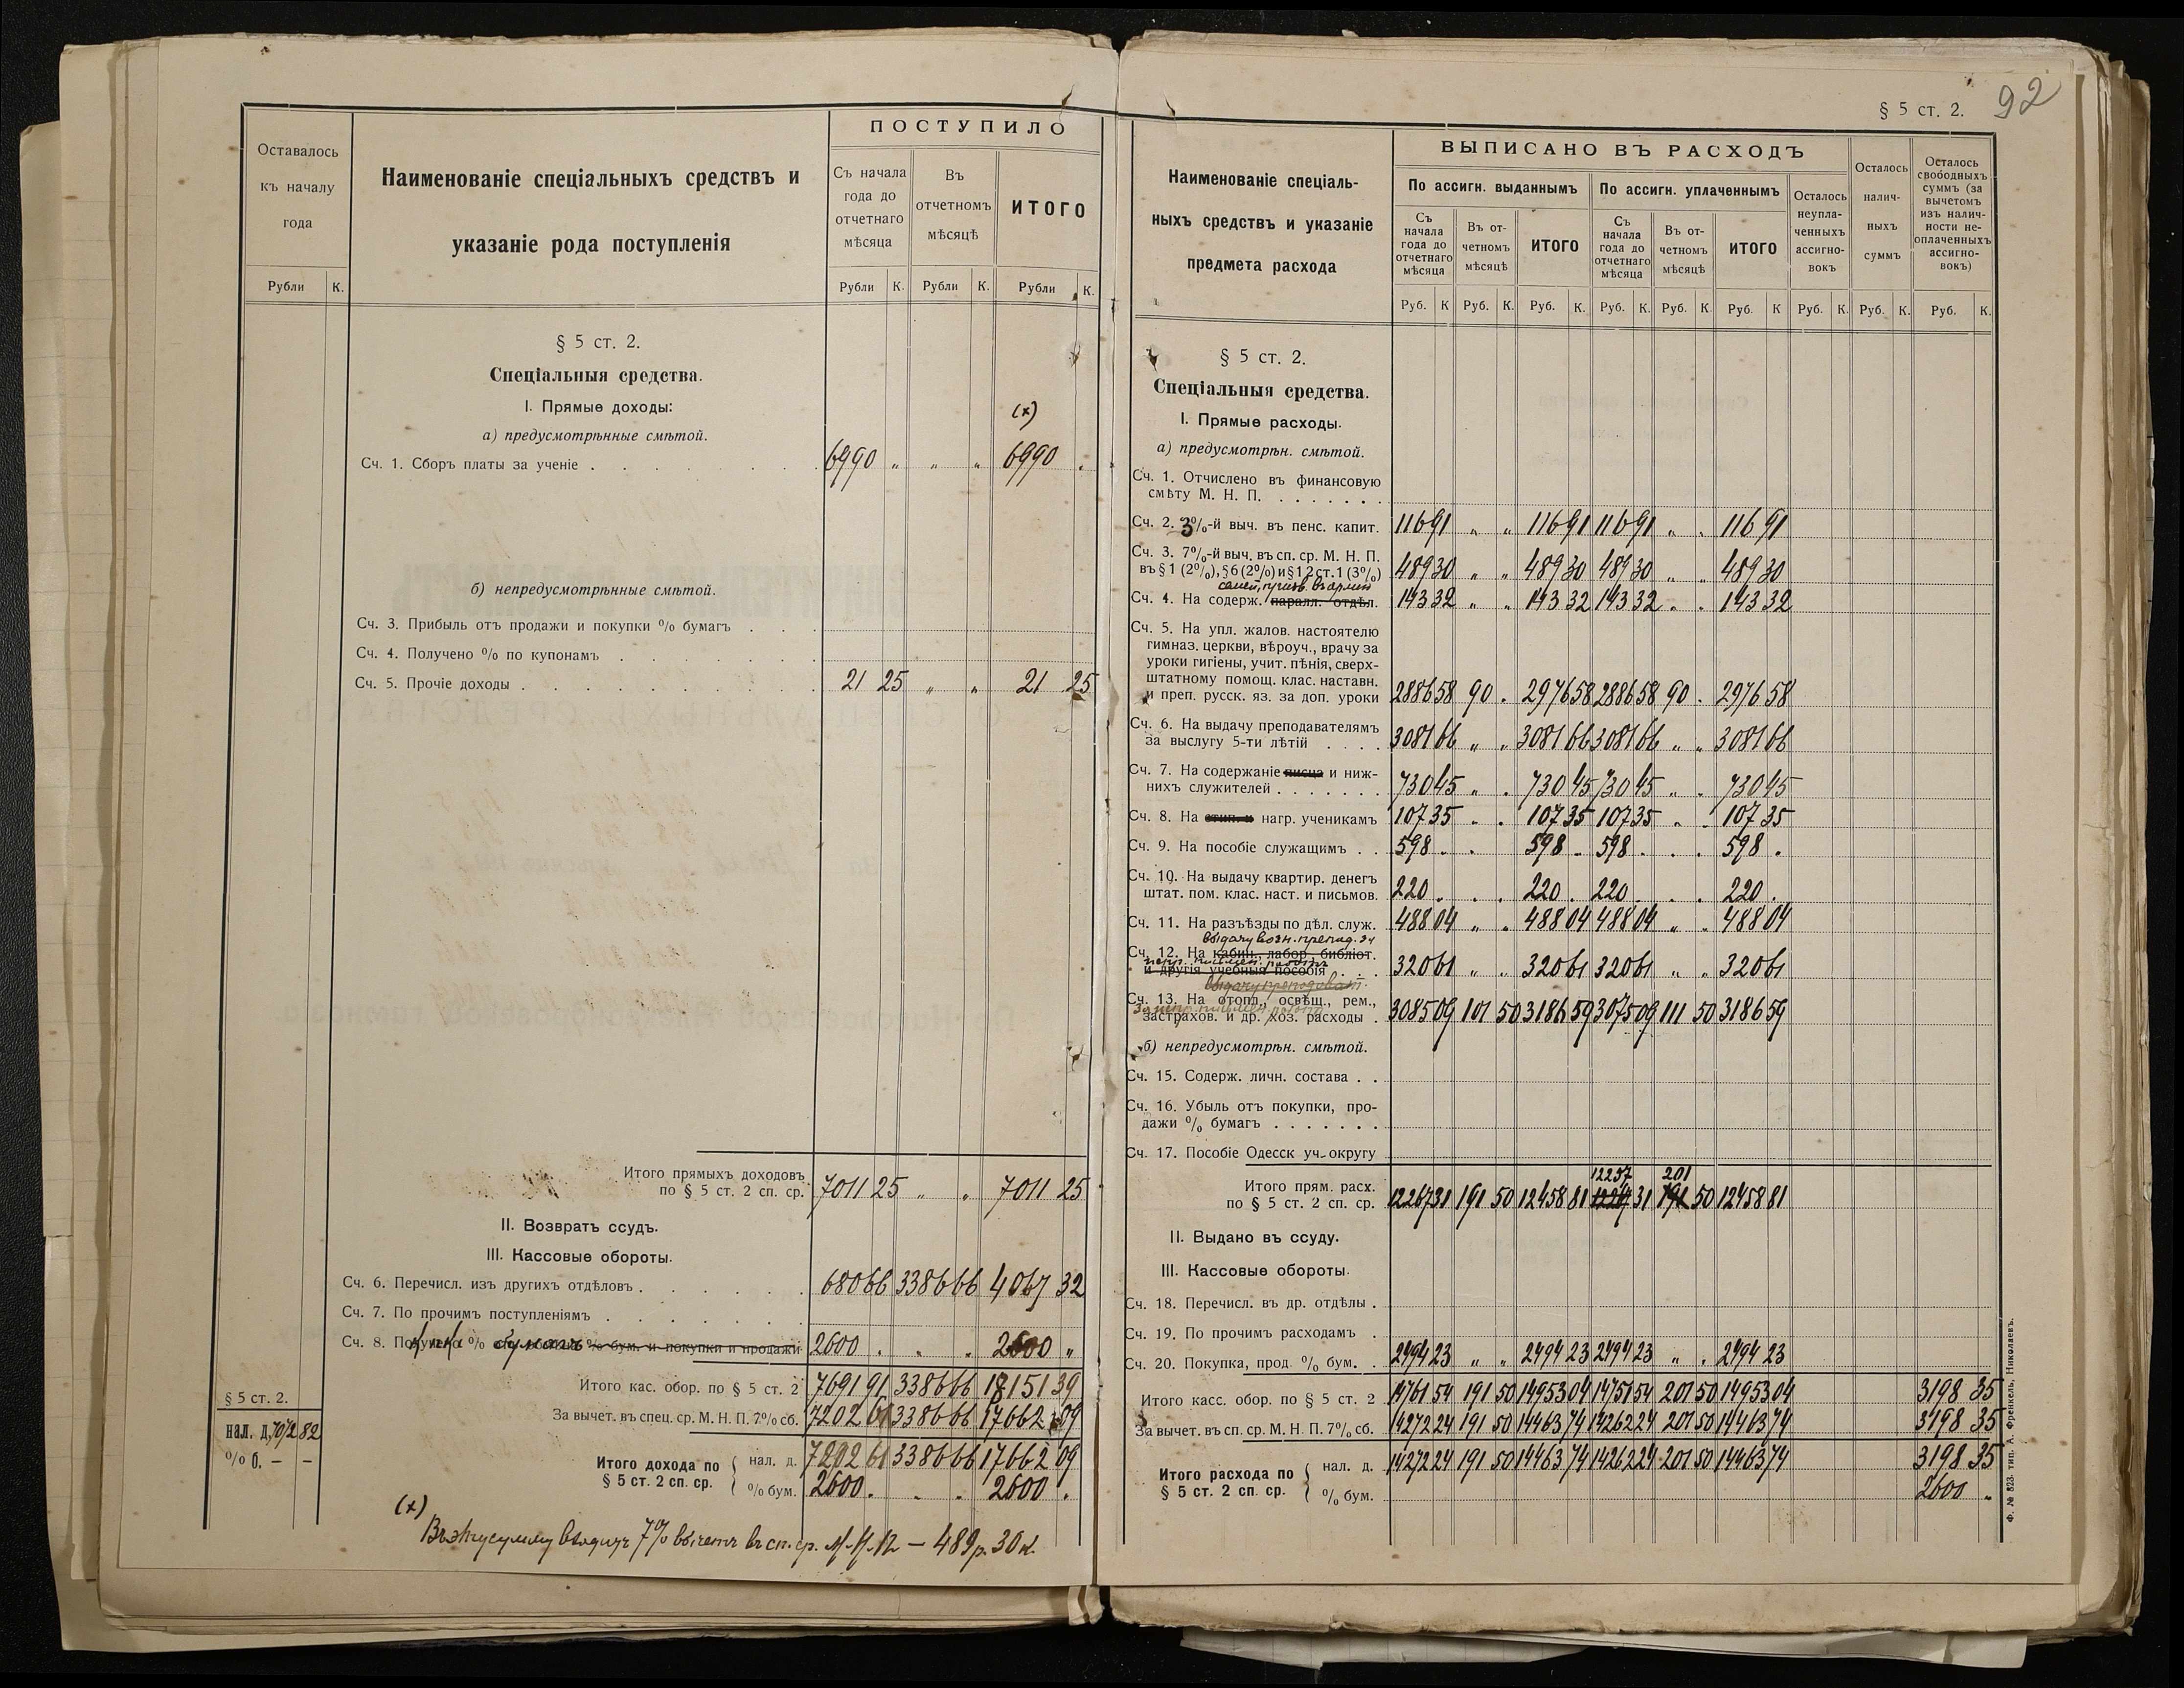 92
§ 5 ст. 2.
Оставалось
къ началу
года
Рубли К.
Наименованіе спеціальныхъ средствъ и
указаніе рода поступленія
ПОСТУПИЛО
Съ начала
года до
отчетнаго
мѣсяца
Въ
отчетномъ
мѣсяцѣ
ИТОГО
Рубли К. Рубли К. Рубли К.
§ 5 ст. 2.
Спеціальныя средства.
I. Прямые доходы:
(х)
а) предусмотрѣнные смѣтой.
Сч. 1. Сборъ платы за ученіе . . . . . . . 6990 „ „ „ 6990 .
б) непредусмотрѣнные смѣтой.
Сч. 3. Прибыль отъ продажи и покупки % бумагъ . . .
Сч. 4. Получено % по купонамъ . . . . . . .
Сч. 5. Прочіе доходы . . . . . . . . . . 21 25 „ „ 21 25
Итого прямыхъ доходовъ
по § 5 ст. 2 сп. ср. 7011 25 „ „ 7011 25
II. Возвратъ ссудъ.
III. Кассовые обороты.
Сч. 6. Перечисл. изъ другихъ отдѣловъ . . . . . . 680 66 3386 66 4067 32
Сч. 7. По прочимъ поступленіямъ . . . . . .
Сч. 8. % бумагъ % бум. и покупки и продажи 2600 . . . 2600 „
Итого кас. обор. по § 5 ст. 2 7691 91 3386 66 18151 39
За вычет. въ спец. ср. М. Н. П. 7% сб. 7202 61 3386 66 17662 09
Итого дохода по
§ 5 ст. 2 сп. ср.
нал. д. 7202 61 3386 66 17662 09
% бум. 2600 . . . 2600 .
§ 5 ст. 2.
нал. д. 7072 82
% б. — —
(х)
Въ эту сумму входитъ 7% вычетъ въ сп. ср. М.Н.П — 489 р. 30 к.
Наименованіе спеціаль-
ныхъ средствъ и указаніе
предмета расхода
ВЫПИСАНО ВЪ РАСХОДЪ
По ассигн. выданнымъ По ассигн. уплаченнымъ
Съ
начала
года до
отчетнаго
мѣсяца
Въ от-
четномъ
мѣсяцѣ
ИТОГО
Съ
начала
года до
отчетнаго
мѣсяца
Въ от-
четномъ
мѣсяцѣ
ИТОГО
Осталось
неупла-
ченныхъ
ассигно-
вокъ
Осталось
налич-
ныхъ
суммъ
Осталось
свободныхъ
суммъ (за
вычетомъ
изъ налич-
ности не-
оплаченныхъ
ассигно-
вокъ)
Руб. К Руб. К. Руб. К. Руб. К. Руб. К. Руб. К Руб. К. Руб. К. Руб. К.
§ 5 ст. 2.
Спеціальныя средства.
I. Прямые расходы.
а) предусмотрѣн. смѣтой.
Сч. 1. Отчислено въ финансовую
смѣту М. Н. П. . . . . . . .
Сч. 2. 3%-й выч. въ пенс. капит. 116 91 „ „ 116 91 116 91 „ . 116 91
Сч. 3. 7%-й выч. въ сп. ср. М. Н. П.
въ § 1 (2%), § 6 (2%) и § 12 ст. 1 (3%) 489 30 „ „ 489 30 489 30 „ . 489 30
семей, призв. въ армію
Сч. 4. На содерж. паралл. отдѣл. 143 32 „ „ 143 32 143 32 „ . 143 32
Сч. 5. На упл. жалов. настоятелю
гимназ. церкви, вѣроуч., врачу за
уроки гигіены, учит. пѣнія, сверх-
штатному помощ. клас. наставн.
и преп. русск. яз. за доп. уроки 2886 58 90 . 2976 58 2886 58 90 . 2976 58
Сч. 6. На выдачу преподавателямъ
за выслугу 5-ти лѣтій . . . . 3081 66 „ „ 3081 66 3081 66 „ „ 3081 66
Сч. 7. На содержаніе писца и ниж-
нихъ служителей . . . . . . . 730 45 „ . 730 45 730 45 „ . 730 45
Сч. 8. На стип. и нагр. ученикамъ 107 35 „ . 107 35 107 35 „ . 107 35
Сч. 9. На пособіе служащимъ . . 598 . . 598 . 598 . . . 598 .
Сч. 10. На выдачу квартир. денегъ
штат. пом. клас. наст. и письмов. 220 . . . 220 . 220 . . . 220 .
Сч. 11. На разъѣзды по дѣл. служ. 488 04 „ „ 488 04 488 04 „ . 488 04
выдачу возн. препод. за
Сч. 12. На кабин., лабор., библіот.
и другія учебныя пособія . . . 320 61 „ „ 320 61 320 61 „ „ 320 61
Сч. 13. На отопл., освѣщ., рем.,
застрахов. и др. хоз. расходы . 3085 09 101 50 3186 59 3075 09 111 50 3186 59
б) непредусмотрѣн. смѣтой.
Сч. 15. Содерж. личн. состава . .
Сч. 16. Убыль отъ покупки, про-
дажи % бумагъ . . . . . . .
Сч. 17. Пособіе Одесск уч. округу
12257 201
Итого прям. расх.
по § 5 ст. 2 сп. ср. 12267 31 191 50 12458 81 12267 31 191 50 12458 81
II. Выдано въ ссуду.
III. Кассовые обороты.
Сч. 18. Перечисл. въ др. отдѣлы .
Сч. 19. По прочимъ расходамъ .
Сч. 20. Покупка, прод % бум. . 2494 23 „ „ 2494 23 2494 23 „ . 2494 23
Итого касс. обор. по § 5 ст. 2 14761 54 191 50 14953 04 14751 54 201 50 14953 04 3198 35
За вычет. въ сп. ср. М. Н. П. 7% сб. 14272 24 191 50 14463 74 14262 24 201 50 14463 74 3198 35
Итого расхода по
§ 5 ст. 2 сп. ср.
нал. д. 14272 24 191 50 14463 74 14262 24 201 50 14463 74 3198 35
% бум. 2600 „
Ф. № 823. тип. А. Френкель, Николаевъ.